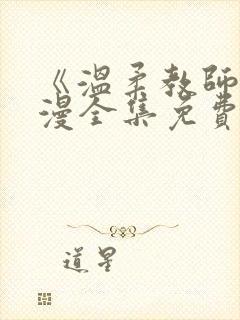 《温柔教师
漫全集免费
道星